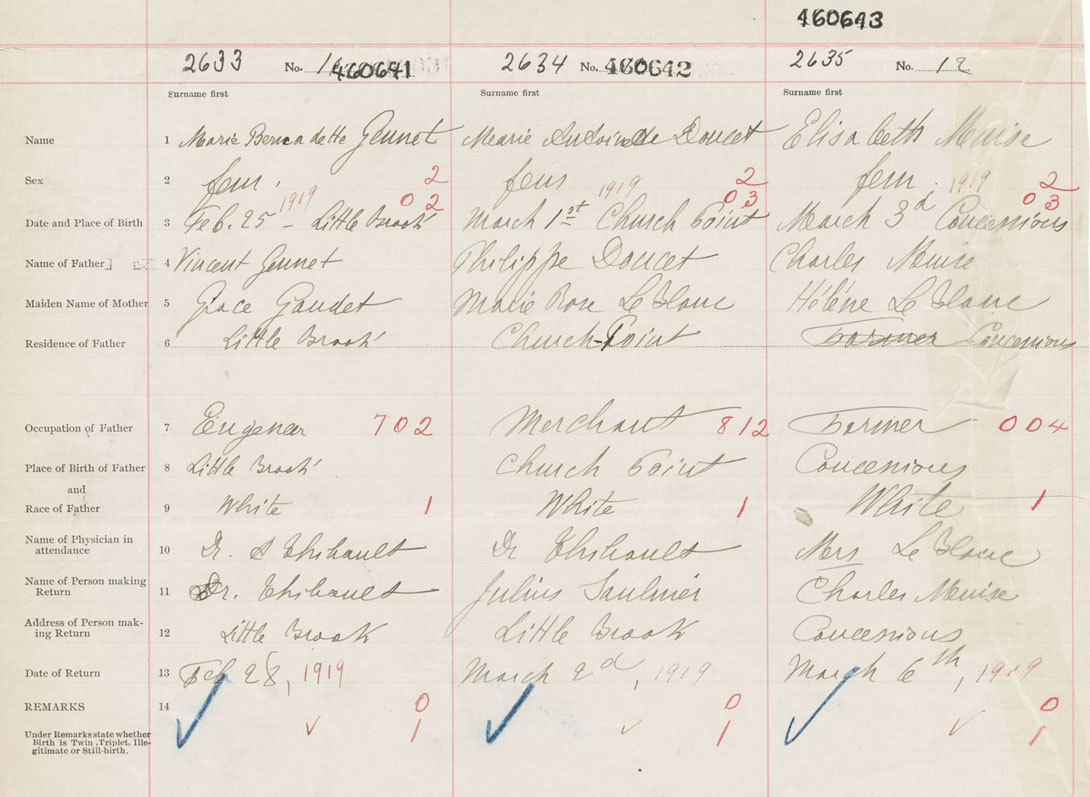 460643
2633 No. 460641 2634 No. 460642 2635 No. 12
Surname first Surname first Surname first
Name 1 Marie Bernadette Gennet Marie Antoinette Doucet Elisabeth Muise
Sex 2 fem. 2 fem 2 fem. 2
1919 02 1919 03 1919 03
Date and Place of Birth 3 Feb. 25 – Little Brook March 1st Church Point March 3d Concessions
Name of Father 4 Vincent Gennet Philippe Doucet Charles Muise
Maiden Name of Mother 5 Grace Gaudet Marie Rose Le Blanc Hélène Le Blanc
Residence of Father 6 Little Brook Church-Point Farmer Concessions
Occupation of Father 7 Engeneer 702 Merchant 812 Farmer 004
Place of Birth of Father 8 Little Brook Church Point Concessions
and
Race of Father 9 White 1 White 1 White 1
Name of Physician in
attendance 10 Dr. Thibault Dr Thibault Mrs Le Blanc
Name of Person making
Return 11 Dr. Thibault Julius Saulnier Charles Muise
Address of Person mak-
ing Return 12 Little Brook Little Brook Concessions
Date of Return 13 Feb 28, 1919 March 2d, 1919 March 6th, 1919
REMARKS 14 0 0 0
Under Remarks state whether
Birth is Twin, Triplet, Ille-
gitimate or Still-birth. 1 1 1